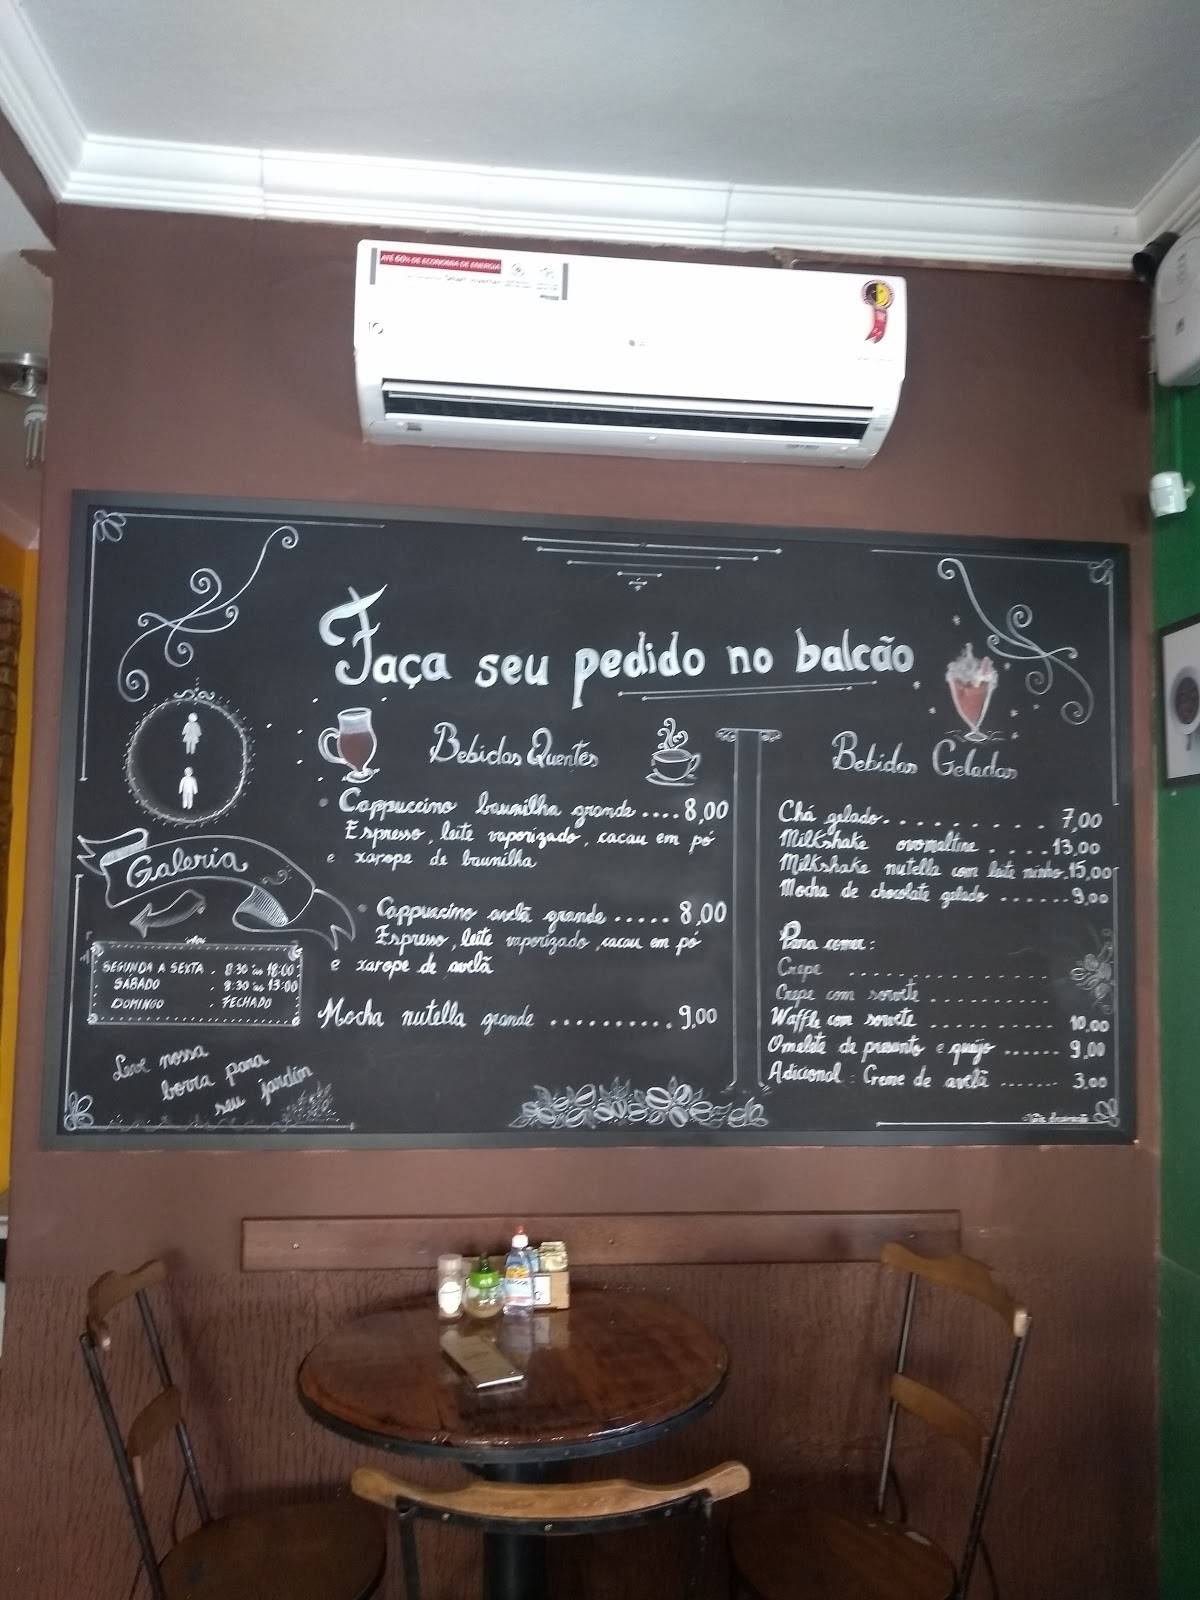 ATÉ 60% DE ECONOMIA DE ENERGIA
Faça seu pedido no balcão
Galeria
SEGUNDA A SEXTA . 8:30 às 18:00
SÁBADO . 8:30 às 13:00
DOMINGO . FECHADO
Leve nossa
borra para
seu jardim
Bebidas Quentes
Cappuccino baunilha grande .... 8,00
Espresso, leite vaporizado, cacau em pó
e xarope de baunilha
Cappuccino avelã grande ..... 8,00
Espresso, leite vaporizado, cacau em pó
e xarope de avelã
Mocha nutella grande .......... 9,00
Bebidas Geladas
Chá gelado.......... 7,00
Milkshake ovomaltine ..... 13,00
Milkshake nutella com leite ninho.15,00
Mocha de chocolate gelado ....... 9,00
Para comer:
Crepe .................
Crepe com sorvete ...........
Waffle com sorvete ........... 10,00
Omelete de presunto e queijo ...... 9,00
Adicional: Creme de avelã ....... 3,00